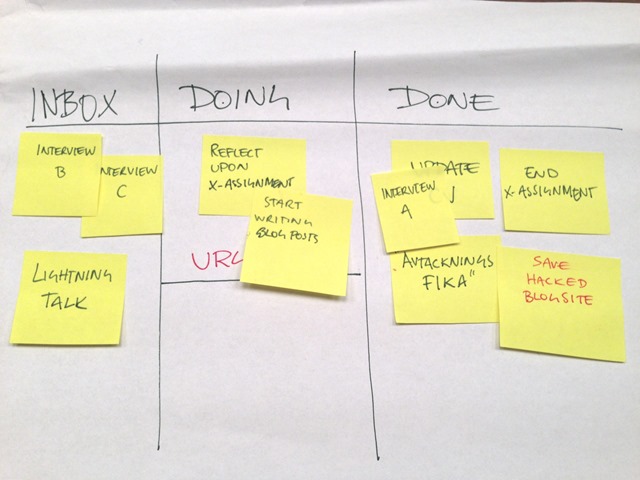 INBOX
INTERVIEW
B
INTERVIEW
C
LIGHTNING
TALK
DOING
REFLECT
UPON
X-ASSIGNMENT
START
WRITING
BLOG POSTS
DONE
UPDATE
CV
INTERVIEW
A
END
X-ASSIGNMENT
AVTACKNINGS
FIKA"
SAVE
HACKED
BLOGSITE